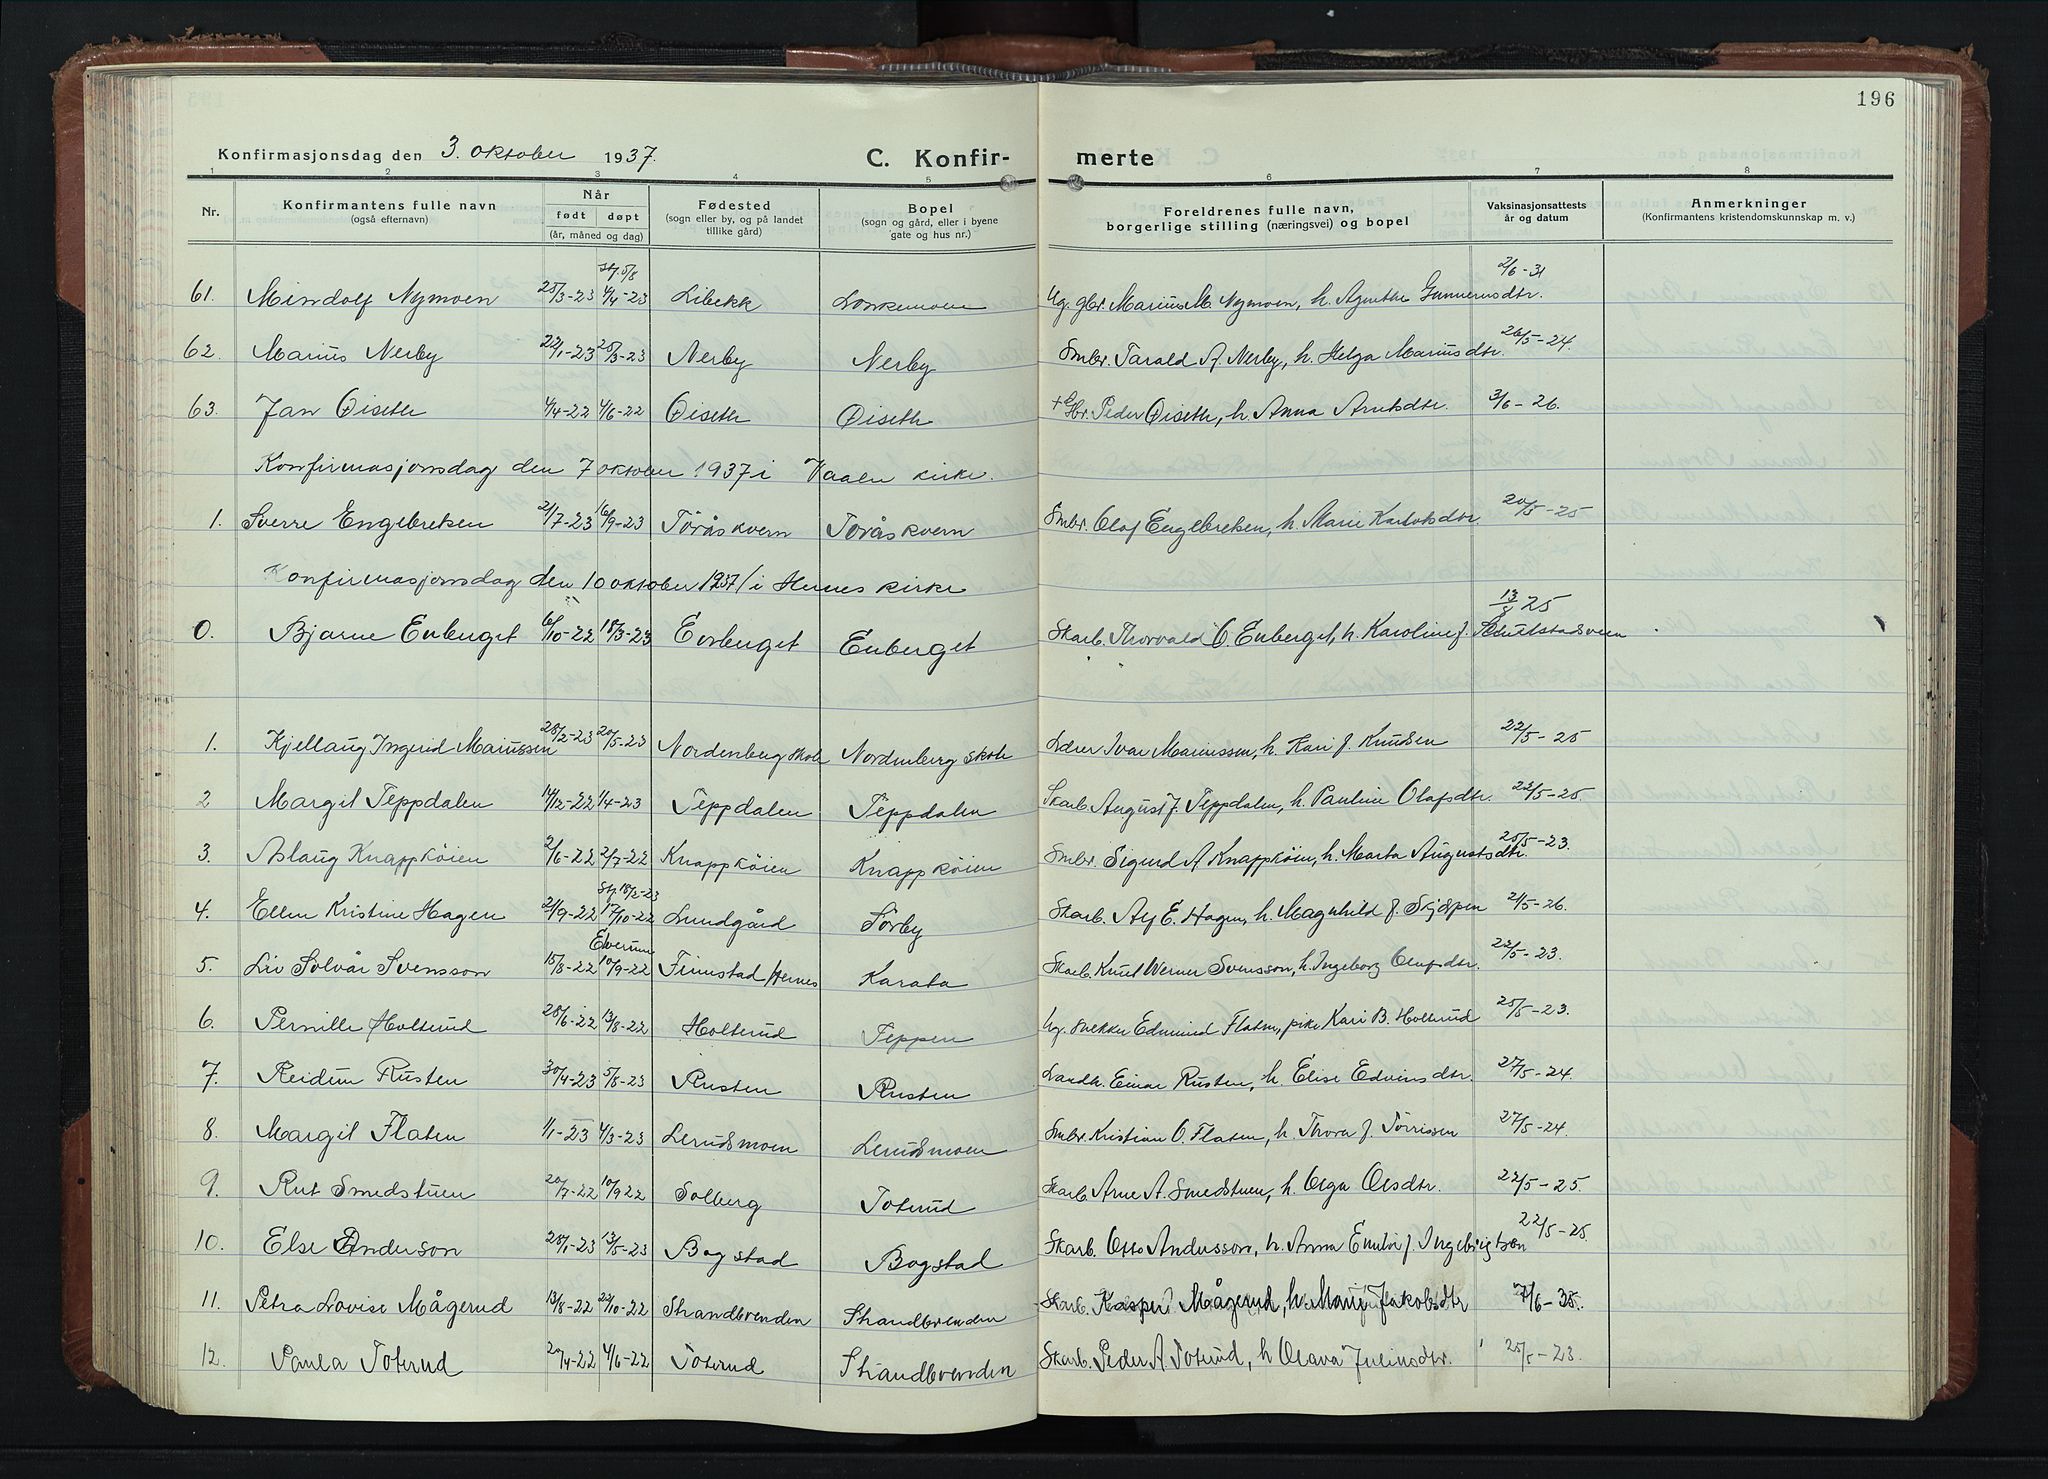 196
Konfirmasjonsdag den 3. oktober 1937. C. Konfir- merte
1 2 3 4 5 6 7 8
Nr. Konfirmantens fulle navn (også efternavn) Når født døpt (år, måned og dag) Fødested (sogn eller by, og på landet tillike gård) Bopel (sogn og gård, eller i byene gate og hus nr.) Foreldrenes fulle navn, borgerlige stilling (næringsvei) og bopel Vaksinasjonsattests år og datum Anmerkninger (Konfirmantens kristendomskunnskap m. v.)
61. Mindolf Nymoen 25/3-23 4/4-23 Libekk Ug. gbr. Marius M. Nymoen, h. Agnethe Gunnerusdtr. 2/6-31
62. Marius Nerby 22/1-23 25/3-23 Nerby Nerby Smbr. Tarald A. Nerby, h. Helga Mariusdtr. 26/5-24.
63. Jan Øiseth 4/4-22 4/6-22 Øiseth Øiseth + Gbr. Peder Øiseth, h. Anna Arntsdtr. 3/6-26.
Konfirmasjonsdag den 7 oktober 1937 i Vaaler kirke.
1. Sverre Engebretsen 21/7-23 16/9-23 Töråskvern Töråskvern Smbr. Olaf Engebretsen, h. Marie 20/5-25
Konfirmasjonsdag den 10 oktober 1937 i Hernes kirke
0. Bjarne Enberget 6/10-22 18/3-23 Enberget Enberget Skarb. Thorvald O. Enberget, h. Karoline f. Schultstadsveen 13/8 25
1. Kjellaug Ingerid Mariussen 28/2-23 20/5-23 Nordenberg skole Nordenberg skole Lærer Ivar Mariussen, h. Kari f. Knudsen 22/5-25
2 Margit Teppdalen 14/12-22 1/4-23 Teppdalen Teppdalen Skarb. August J. Teppdalen, h. Pauline Olafsdtr. 22/5-25.
3. Aslaug Knappkøien 2/6-22 2/7-22 Knappkøien Knappkøien Smbr. Sigurd A Knappkøien, h. Marta Augustsdtr. 25/5-23.
4. Ellen Kristine Hagen 21/9-22 St. 18/2-23 17/10-22 Lundgård Sørby Skarb. Alf E. Hagen, h. Magnhild f. Skjæpen 21/5-26.
5. Liv Solvår Svensson 15/8-22 Elverum 10/9-22 Finstad Hernes Karata Skarb. Knut Werner Svensson, h. Ingeborg Olafsdtr. 22/5-23.
6. Pernille Holterud 28/6-22 13/8-22 Holterud Teppen Ug. snekker Edmund Flaten, pike Kari B. Holterud 25/5-23.
7. Reidun Rusten 30/4-23 5/8-23 Rusten Rusten Landh. Einar Rusten, h. Elise Edvinsdtr. 27/5-24.
8. Margit Flaten 1/1-23 4/3-23 Lerudsmoen Lerudsmoen Smbr. Kristian O. Flaten, h. Thora f. Tørrissen 27/5-24.
9. Rut Smedstuen 20/7-22 10/9 22 Solberg Toterud Skarb. Arne A. Smedstuen, h. Olga Olsdtr. 22/5-25.
10. Else Anderson 28/1-23 13/5-23 Bogstad Bogstad Skarb. Otto Andersson, h. Anna Emilie f. Ingebrigtsen 22/5-25.
11. Petra Lovise Mågerud 13/8-22 22/10-22 Strandbrenden Strandbrenden Skarb. Kasper Mågerud, h. Mari Jakobsdtr 7/6-35.
12. Paula Toterud 20/4-22 4/6-22 Toterud Strandbrenden Skarb. Peder A. Toterud, h. Olava Juliusdtr. 25/5-23.